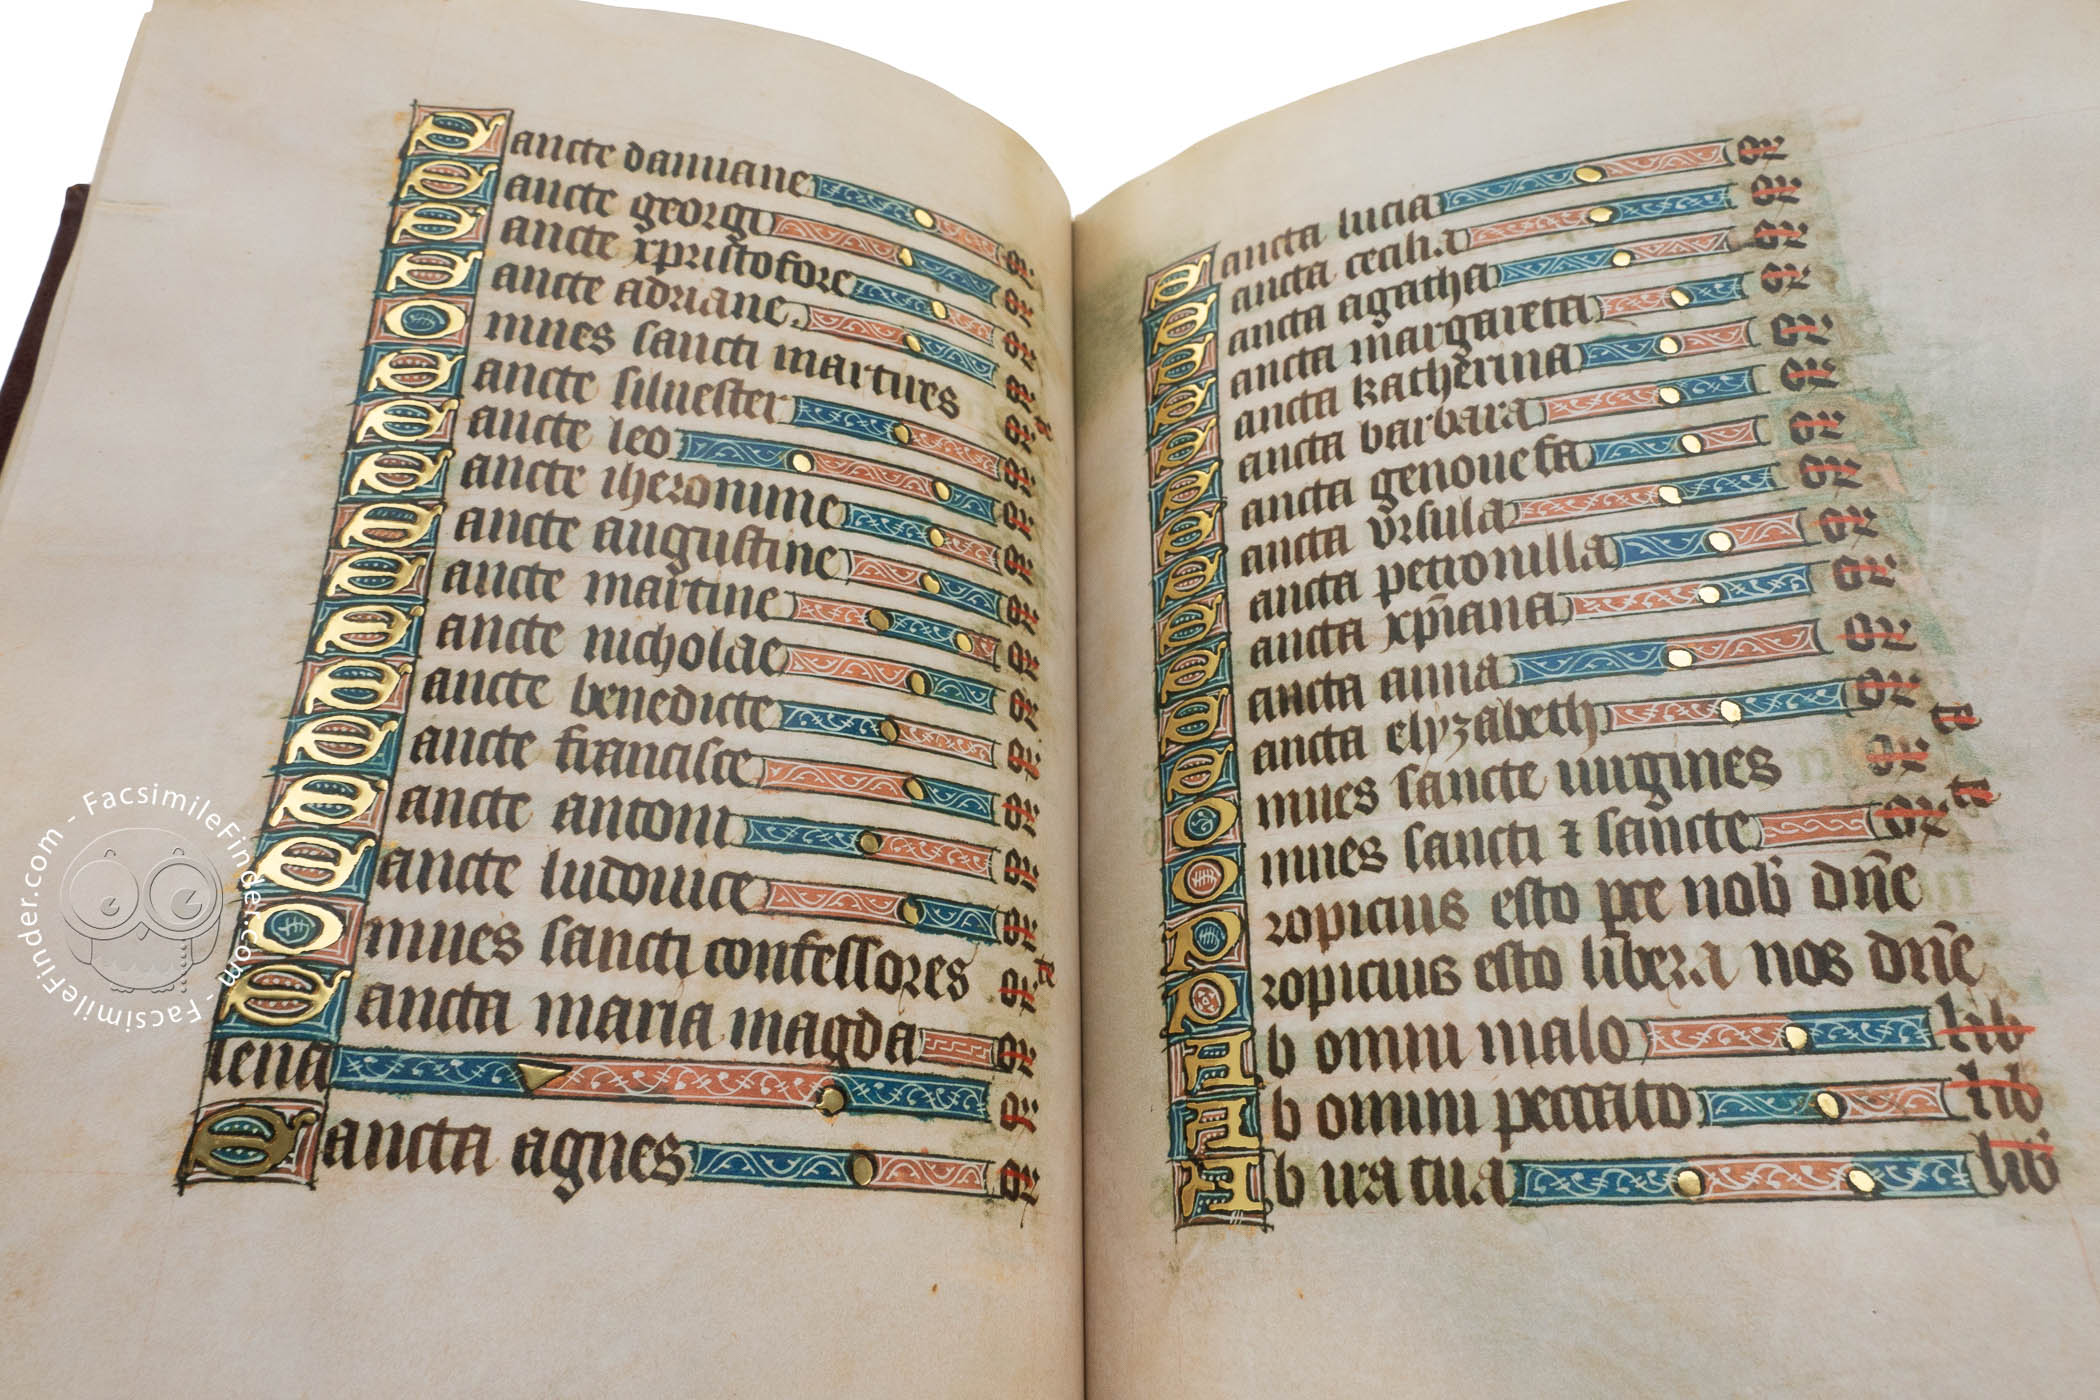 Sancte damiane or
Sancte georgi or
Sancte xpristofore or
Sancte adriane. or
Omnes sancti martires orate
Sancte siluester or
Sancte leo or
Sancte iheronime or
Sancte augustine or
Sancte martine or
Sancte nicholae or
Sancte benedicte or
Sancte francisce or
Sancte antoni or
Sancte ludouice or
Omnes sancti confessores orᵗᵉ
Sancta maria magda or
lena or
Sancta agnes or
Sancta lucia or
Sancta cecilia or
Sancta agatha or
Sancta margareta or
Sancta katherina or
Sancta barbara or
Sancta genouefa or
Sancta vrsula or
Sancta petronilla or
Sancta xp̄iana or
Sancta anna or
Sancta elyzabeth or
Omnes sancte uirgines
Omnes sancti ⁊ sancte
Propicius esto pce nob̄ dn̄e
Propicius esto libera nos dn̄e
Ab omni malo lib
Ab omni peccato lib
Ab ira tua lib
FacsimileFinder.com - FacsimileFinder.com - FacsimileFinder.com